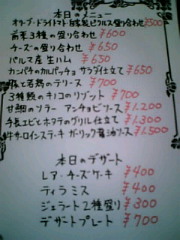 本日のメニュー
オリーブ・ドライトマト自家製ピクルス盛り合わせ ¥500
前菜3種の盛り合わせ ¥600
チーズの盛り合わせ ¥650
パルマ産生ハム ¥650
カンパチのカルパッチョ サラダ仕立て ¥650
と若鶏のテリーヌ ¥700
3種類のキノコのリゾット ¥700
甘鯛のソテー アンチョビソース ¥1.200
手長エビとホタテのグリル仕立て ¥1.300
牛サーロインステーキ ガーリック醤油ソース ¥1.500
本日のデザート
レア・チーズケーキ ¥400
ティラミス ¥400
ジェラート2種盛り ¥300
デザートプレート ¥700